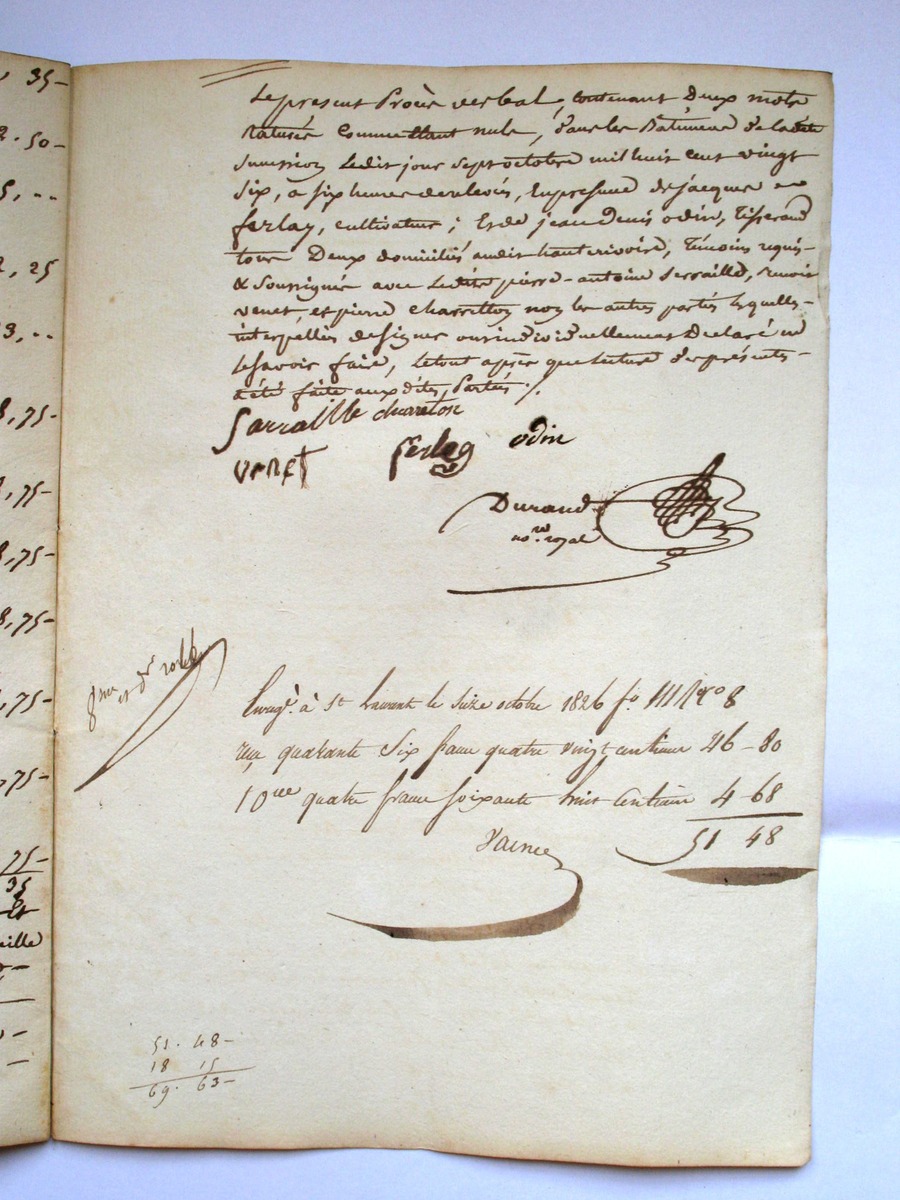 35-
2.50-
5, ..
2, 25
3, ..
8,75-
,75-
8,75-
8,75-
,75-
,75-
75-
35
et
aille
Le présent Procès verbal, contenant Deux mots
raturés comme étant nuls, dans les Batimens de la dite
succession Ledit jour sept octobre mil huit cent vingt
six, a six heures de relevée, En présence de jacques
ferlay, cultivateur ; Et de jean Denis odin, Tisserand
tous Deux domiciliés audit hauterivoire, Témoins requis
& Soussignés avec Ledits pierre-antoine Serraille, Benoit
venet, et pierre Charretton non les autres parties Lesquelles
interpellés de signer ont individuellement Déclaré ne
le savoir faire, le tout après que lecture des présentes
a été faite aux dites Parties ./.
Sarraille chareton
venet ferlay odin
Durand
no.re royal
8me et der rolle
Enregé. à St Laurent le seize octobre 1826 fo 111 Ro Co 8
reçu quarante Six francs quatre vingt centimes 46-80
10me quatre francs soixante huit centimes 4 68
51 48
51. 48-
18 15
69. 63-